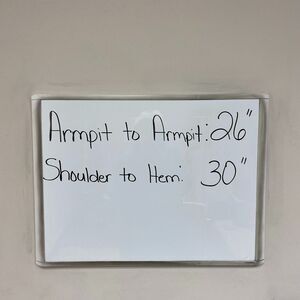 Armpit to Armpit: 26"
Shoulder to Hem: 30"